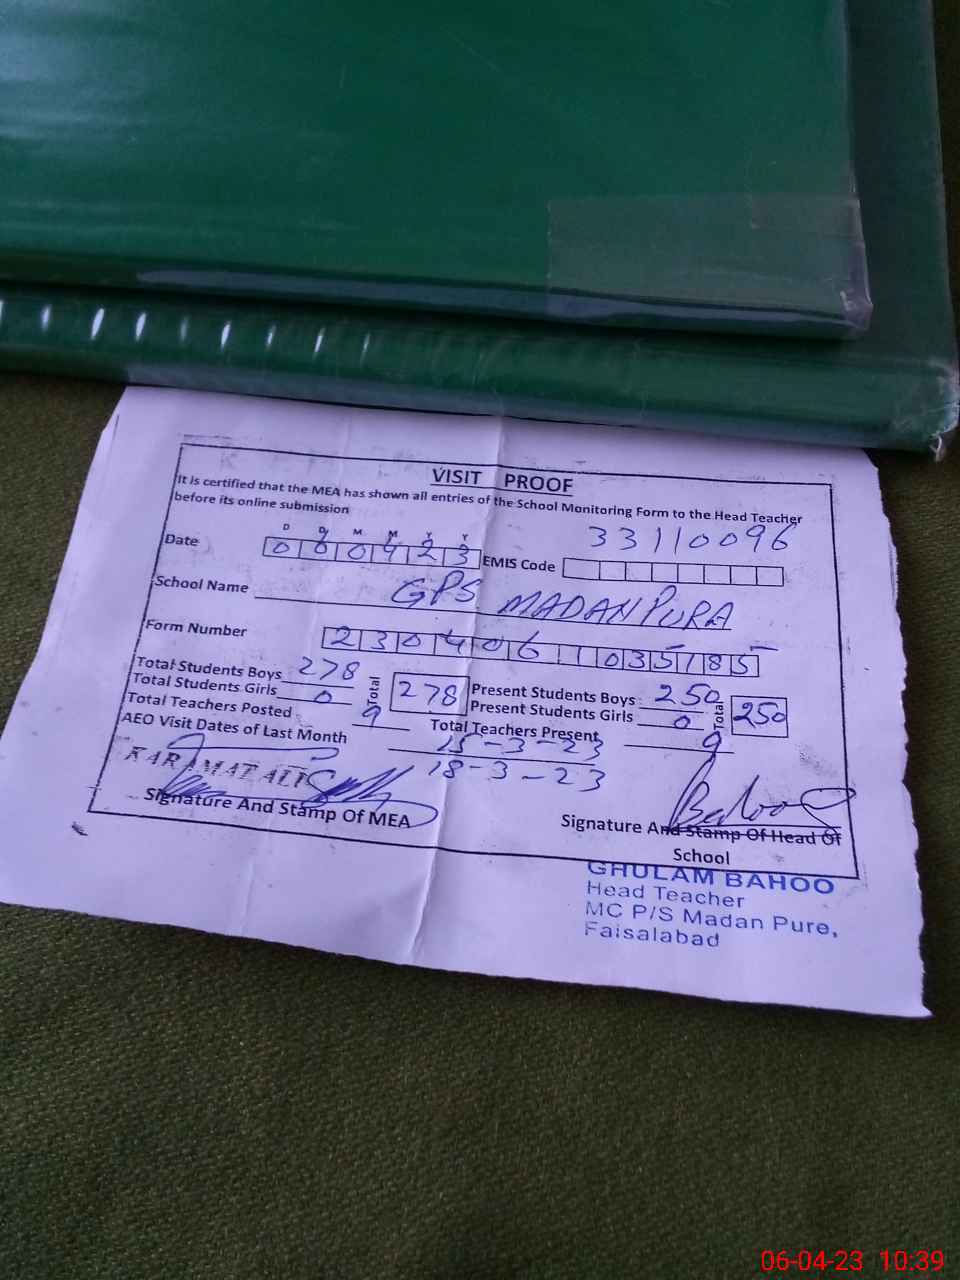 VISIT PROOF
It is certified that the MEA has shown all entries of the School Monitoring Form to the Head Teacher
before its online submission
D D M M Y Y
Date 060423 EMIS Code 33110096
School Name GPS MADANPURA
Form Number 2304061035185
Total Students Boys 278 Total 278 Present Students Boys 250 Total 250
Total Students Girls 0 Present Students Girls 0
Total Teachers Posted 9 Total Teachers Present 9
AEO Visit Dates of Last Month 15-3-23
18-3-23
KARAMAT ALI
Signature And Stamp Of MEA
Bahoo
Signature And Stamp Of Head Of
School
GHULAM BAHOO
Head Teacher
MC P/S Madan Pure,
Faisalabad
06-04-23 10:39